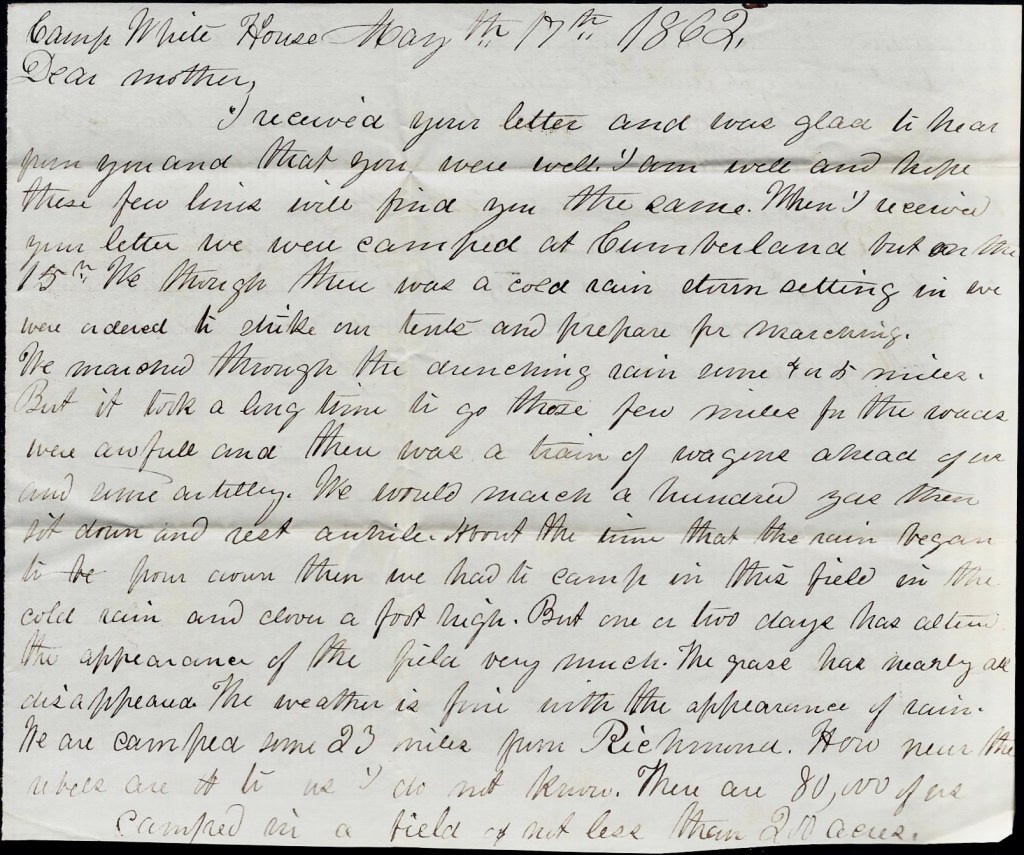 Camp White House May th 17th 1862.
Dear mother,
I received your letter and was glad to hear
from you and that you were well. I am well and hope
these few lines will find you the same. When I received
your letter we were camped at Cumberland but on the
15th We though there was a cold rain storm setting in we
were ordered to strike our tents and prepare for marching.
We marched through the drenching rain some 4 or 5 miles.
But it took a long time to go those few miles for the roads
were awfull and there was a train of wagons ahead of us
and some artillery. We would march a hundred yas then
sit down and rest awhile. About the time that the rain began
to be pour down then we had to camp in this field in the
cold rain and clover a foot high. But one or two days has altered
the appearance of the field very much. The grass has nearly all
disappeared. The weather is fine with the appearance of rain.
We are camped some 23 miles from Richmond. How near the
rebels are to us I do not know. There are 80,000 of us
camped in a field of not less than 200 acres.